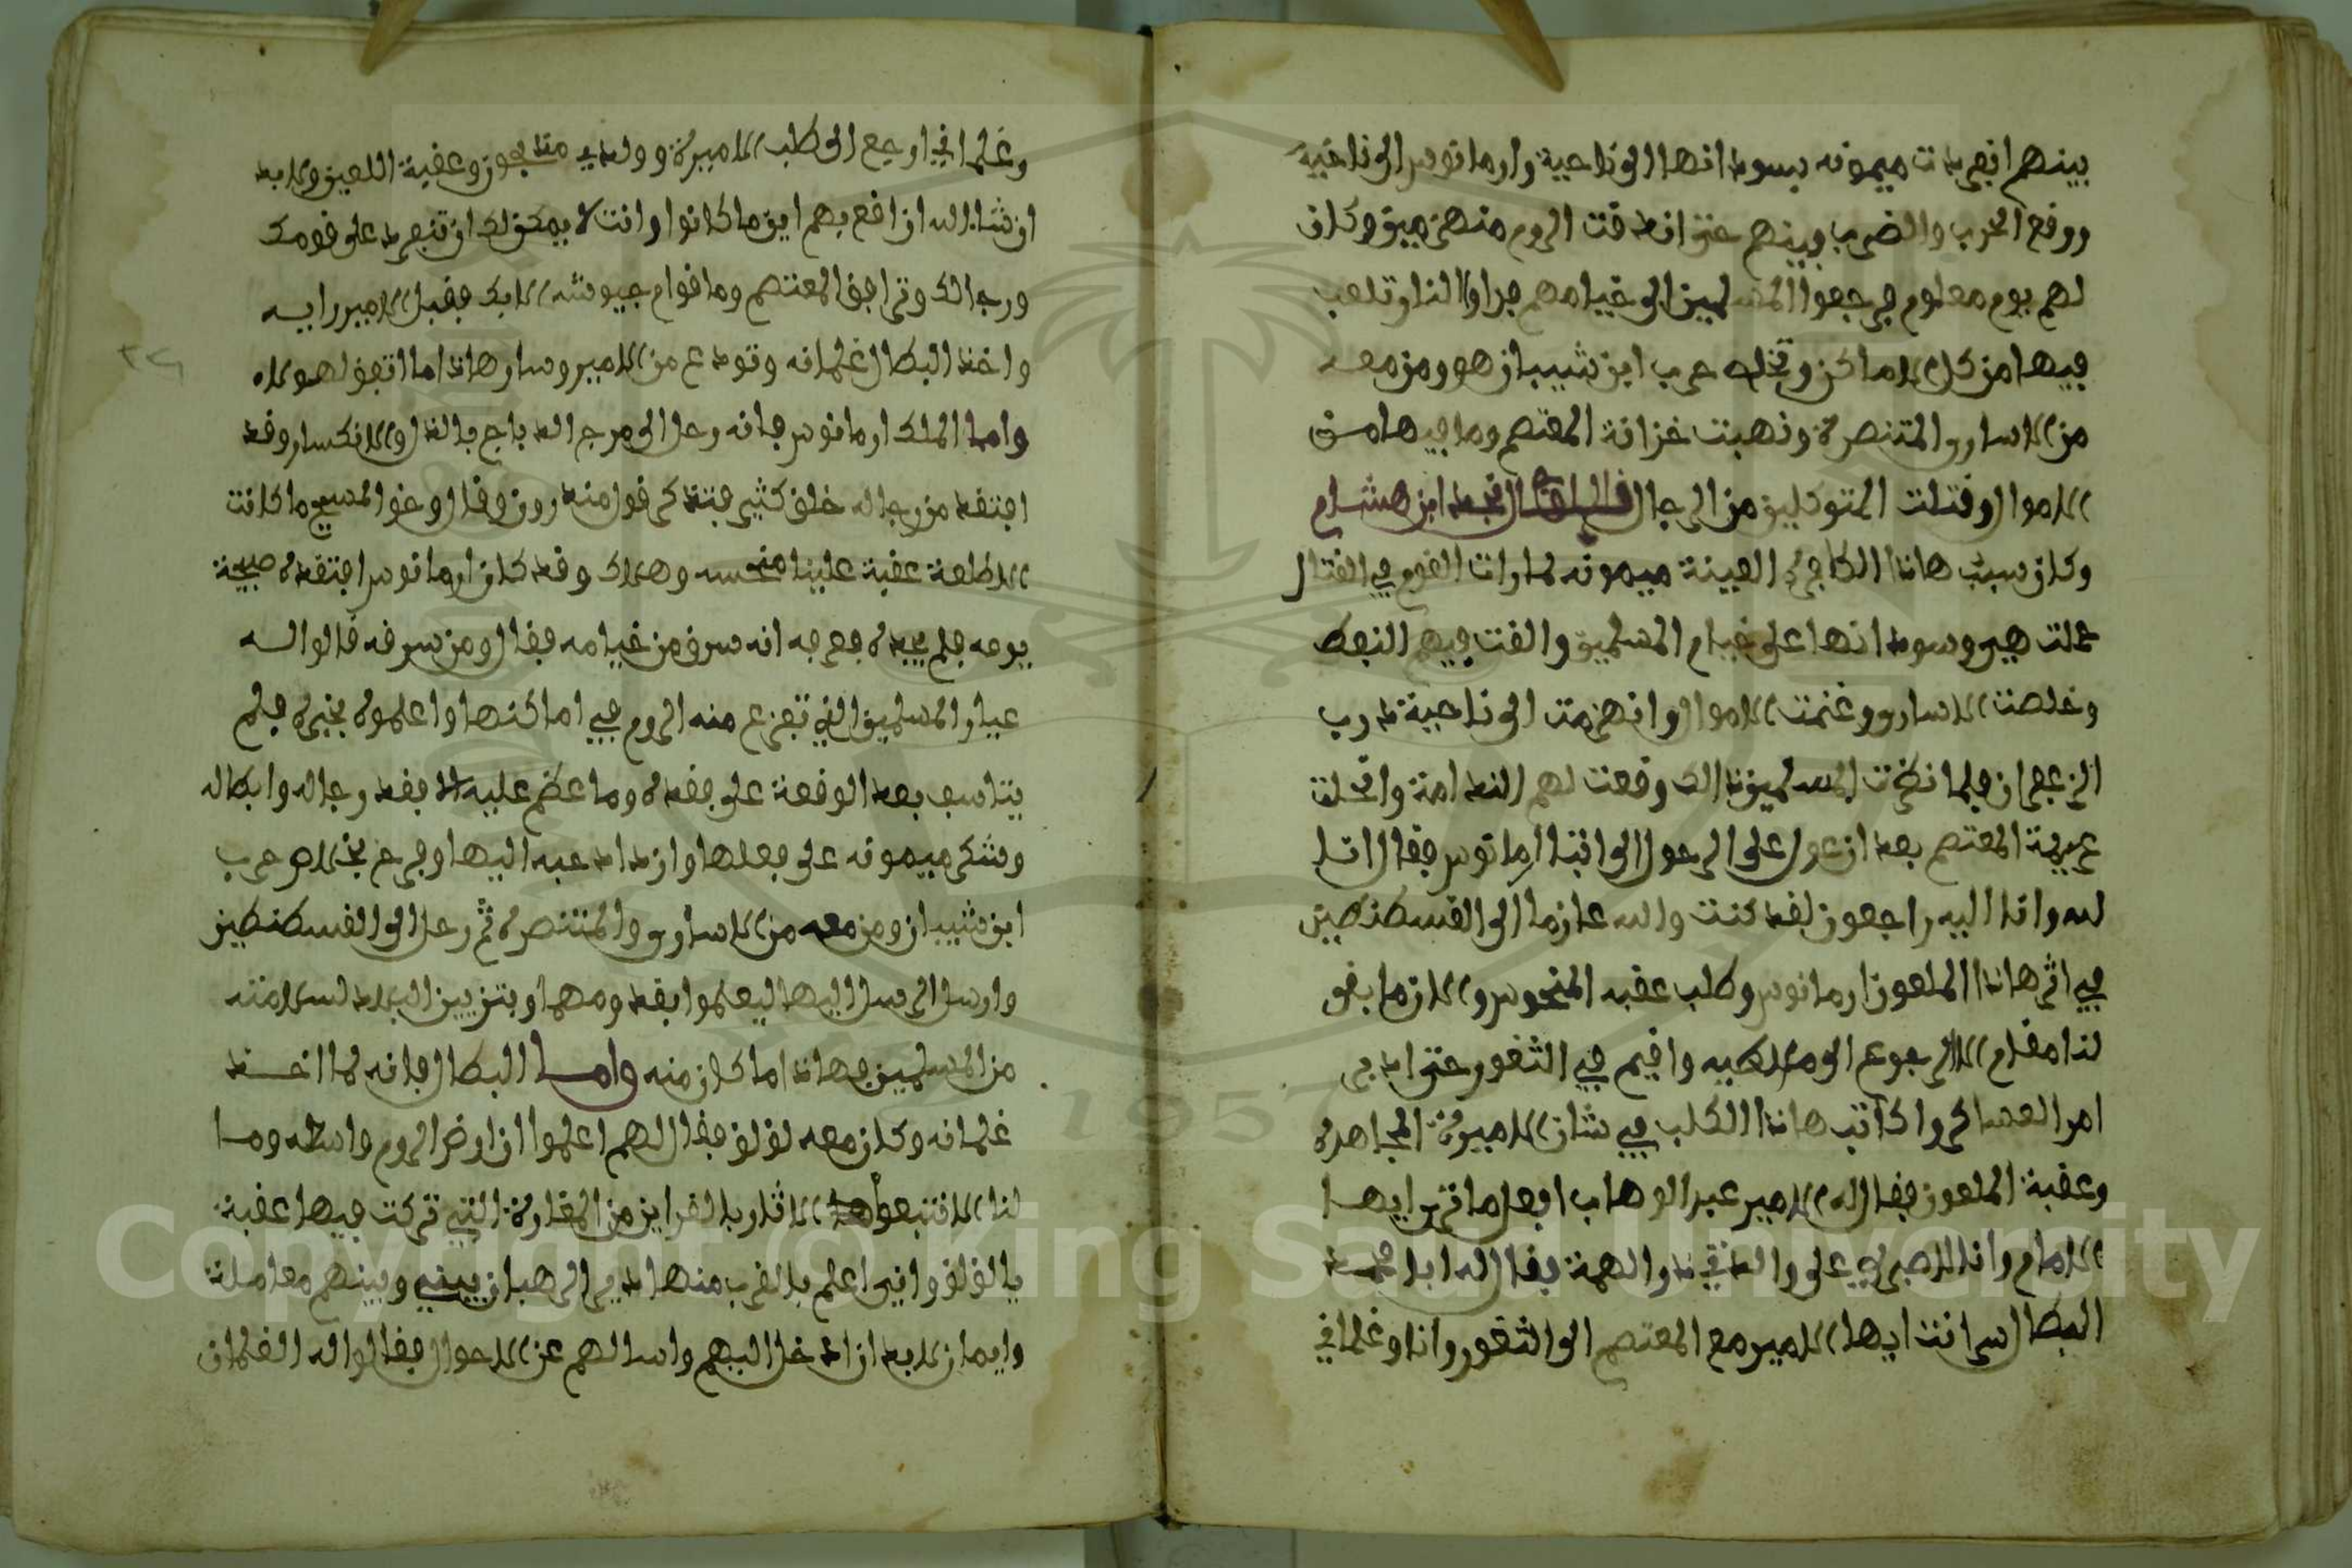 بينهم انفردت ميمونه بسودانها الى ناحية وارمانوس الى ناحية
ووقع الحرب والضرب بينهم حتى اندقت الروم منهزمين وكان
لهم يوم معلوم فرجعوا المسلمين الى خيامهم فراوا النار تلعب
فيها من كل الاماكن وتخلص حرب ابن شيبان هو ومن معه
من الاسارى المتنصرة ونهبت خزانة المعتصم وما فيها من
الاموال وقتلت المتوكلين من الرجال قال نجد ابن هشام
وكان سبب هاذا الكافرة العينة ميمونه لما رات القوم في القتال
حملت هي وسودانها على خيام المسلمين والقت فيهم النفط
وخلصت الاسارى وغنمت الاموال وانهزمت الى ناحية درب
الزعفران فلما نظرت المسلمين ذالك وقعت لهم الندامة وانحلت
عزيمة المعتصم بعد ان عول على الرحول الى اقفا ارمانوس فقال انا
لله وانا اليه راجعون لقد كنت والله عازما الى القسطنطين
في اثر هاذا الملعون ارمانوس وطلب عقبه المنحوس والان ما بقى
لنا مقام الا الرجوع الى ملطيه واقيم في الثغور حتى ادبر
امر العساكر واكاتب هاذا الكلب في شان الاميرة المجاهدة
وعقبة الملعون فقال له الامير عبد الوهاب افعل ما تر ايها
الامام وانا للاصبر لي على والدتي ذو الهمة فقال له ابا محمد
البطال سر انت ايها الامير مع المعتصم الى الثغور وانا وغلماني
وغلماني ارجع الى طلب الاميرة وولدي مذبحون وعقبة اللعين ولابد
ان شا الله ان اقع بهم اين ما كانوا وانت لا يمكن لك ان تنفرد على قومك
ورجالك وترافق المعتصم وما قوام جيوشه الا بك فقبل الامير رايه
واخذ البطال غلمانه وتودع من الامير وسار هاذا ما اتفق لهولاء
واما الملك ارمانوس فانه رحل الى مرج الديباج بالذل والانكسار وقد
افتقد من رجاله خلق كثير فتذكر قول منذرون وقال وحق المسيح ما كانت
الا طلعة عقبة علينا منحسه وهلاك وقد كان ارمانوس افتقده صبيحة
يومه فلم يجده فعرفه انه سرق من خيامه فقال ومن سرقه قالوا له
عيار المسلمين الذي تفزع منه الروم في اماكنها واعلموه بخبره فلم
يتاسف بعد الوقعة على فقده وما عظم عليه الا فقد رجاله وابطاله
وشكر ميمونه على فعلها وازداد حبه اليها وفرح بخلاص حرب
ابن شيبان ومن معه من الاسارى والمتنصرة ثم رحل الى القسطنطين
وارسل الرسل اليها ليعلموا بقدومها وبتزيين البلاد لسلامته
من المسلمين فهاذا ما كان منه واما البطال فانه لما اخذ
غلمانه وكان معه لولو فقال لهم اعلموا ان ارض الروم واسعه وما
لنا الا نتبعوا الاثار بالقراين من المغارة التي تركت فيها عقبة
يا لولو واني اعلم بالقرب منها دير الرهبان بيني وبينهم معاملة
وايمان لابد ان ادخل اليهم واسالهم عن الاحوال فقالوا له الغلمان